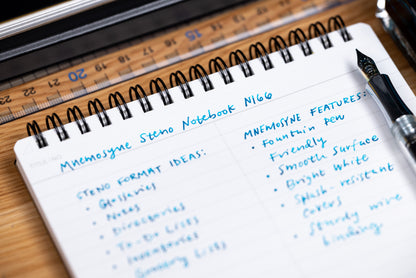 Mnemosyne Steno Notebook N166
STENO FORMAT IDEAS:
• Glossaries
• Notes
• Directories
• To-Do Lists
• Inventories
• Grocery Lists
MNEMOSYNE FEATURES:
• Fountain Pen
Friendly
• Smooth Surface
• Bright White
• Splash-resistant
Covers
• Sturdy wire
binding
20